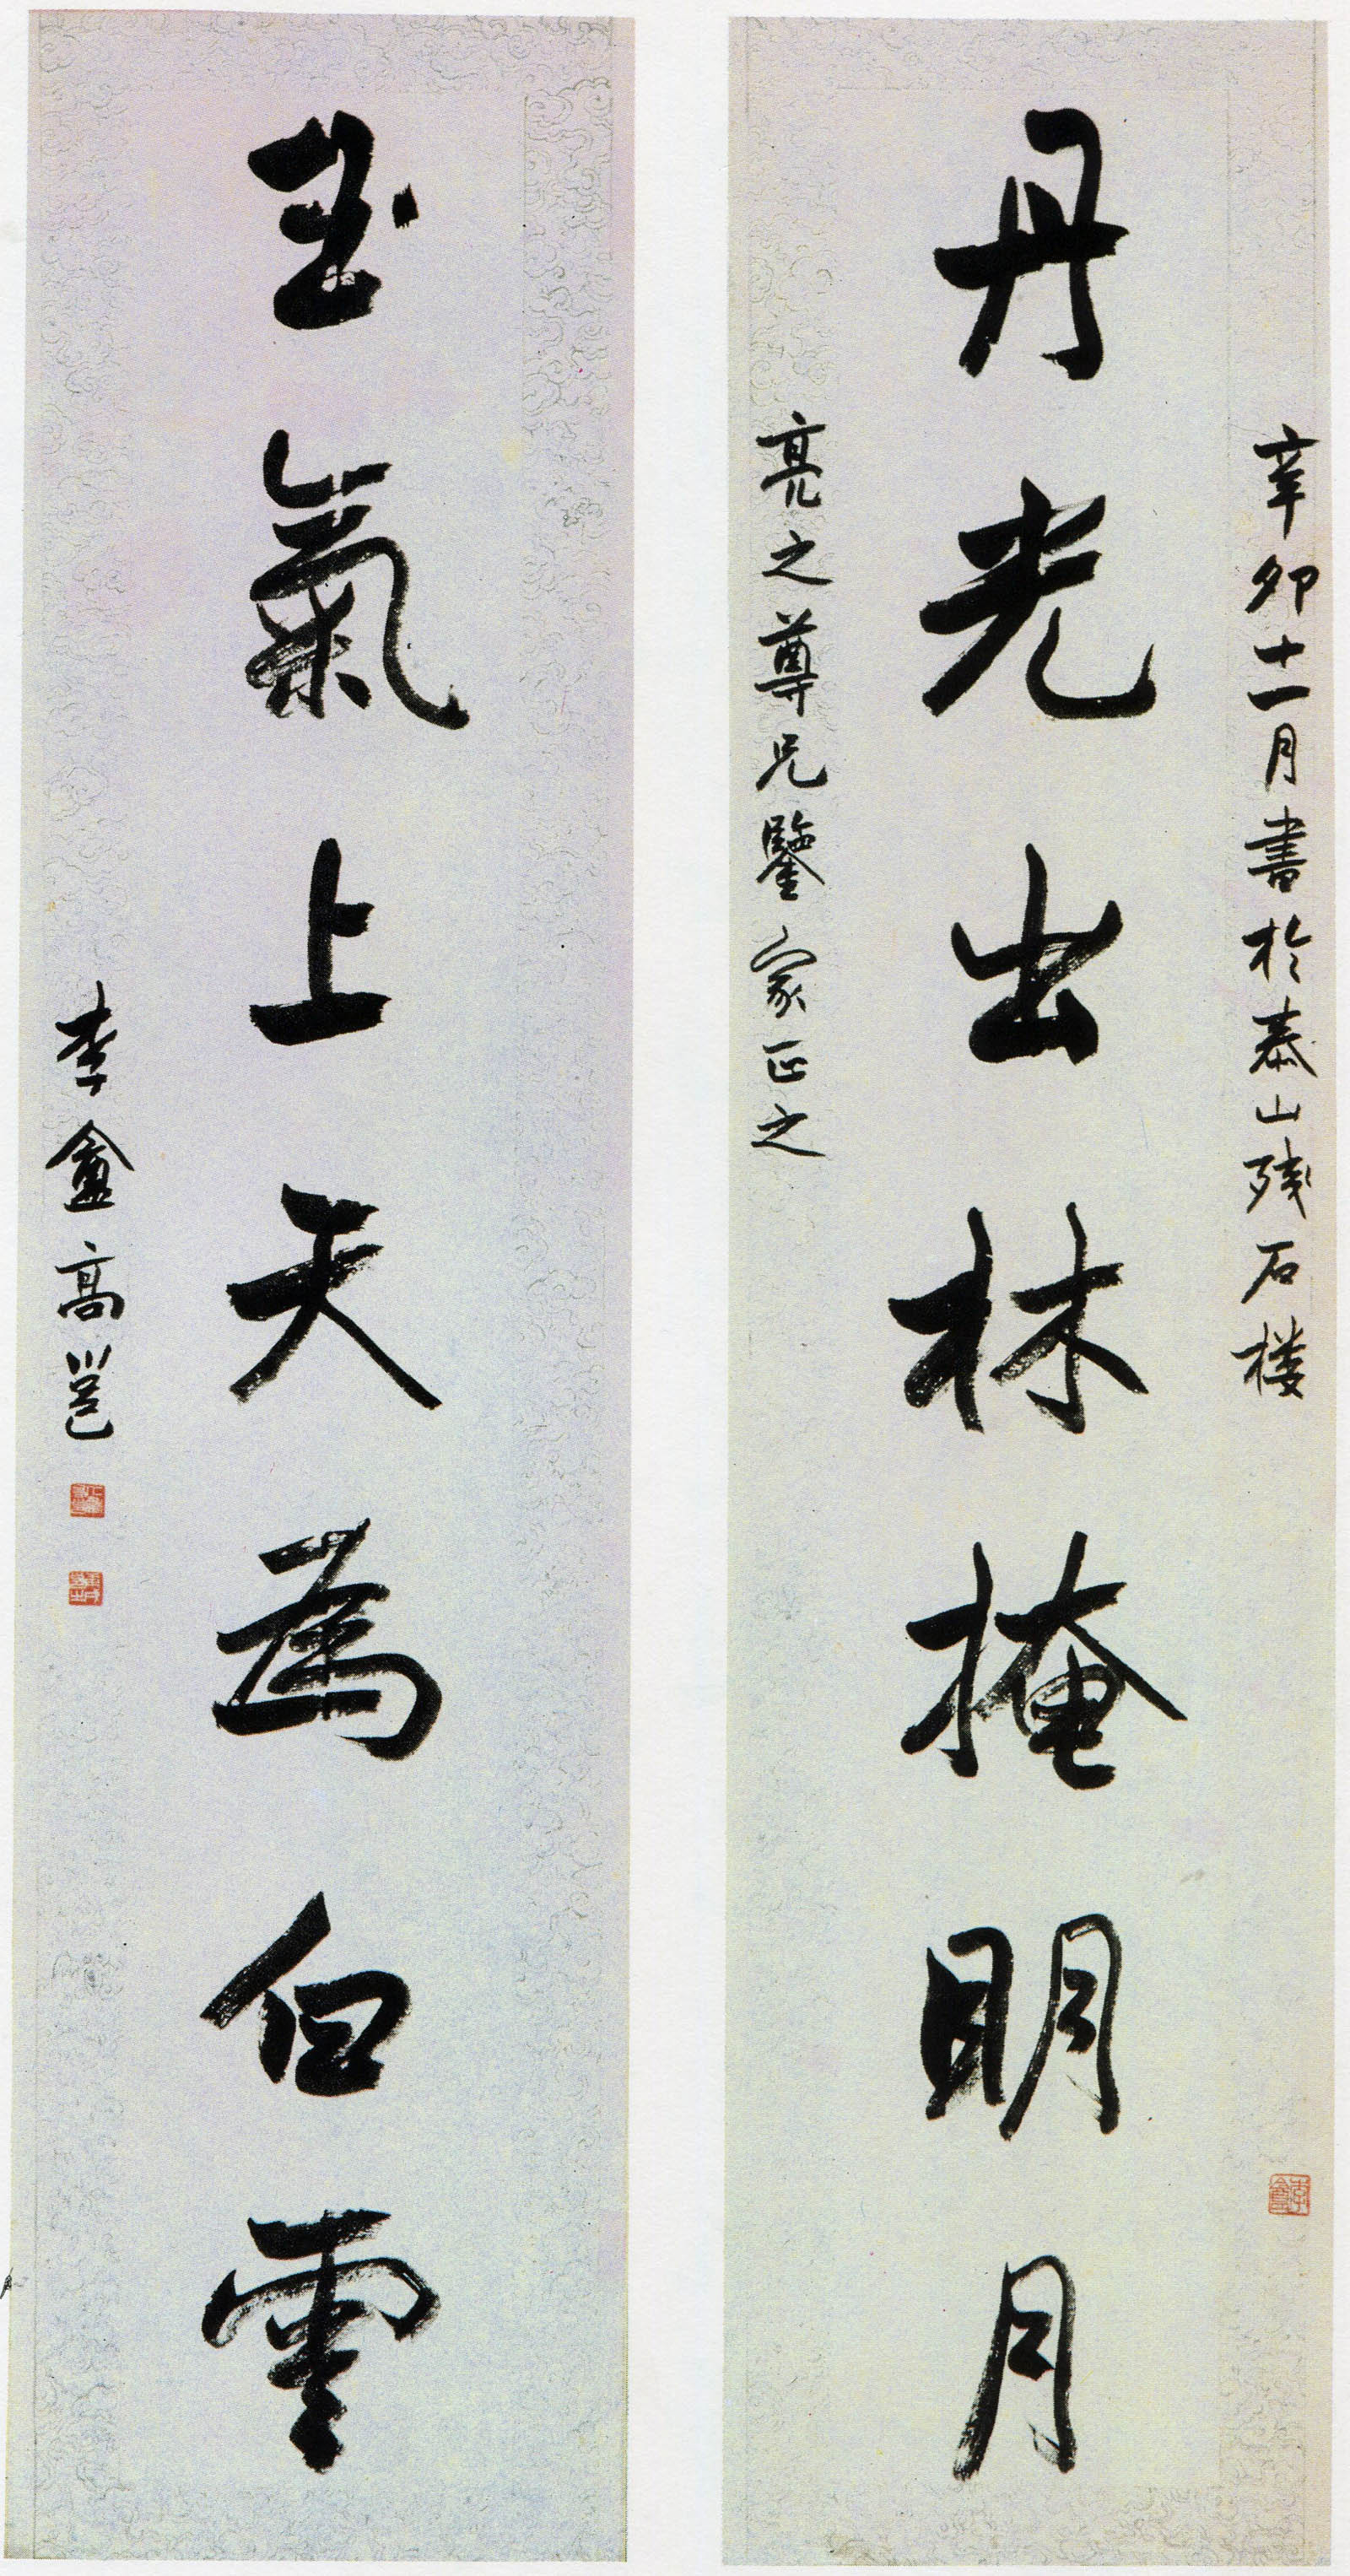 辛卯十一月書於泰山残石楼
丹光出林掩明月
亮之尊兄鑒家正之
玉氣上天為白雲
李盦高邕
李盦